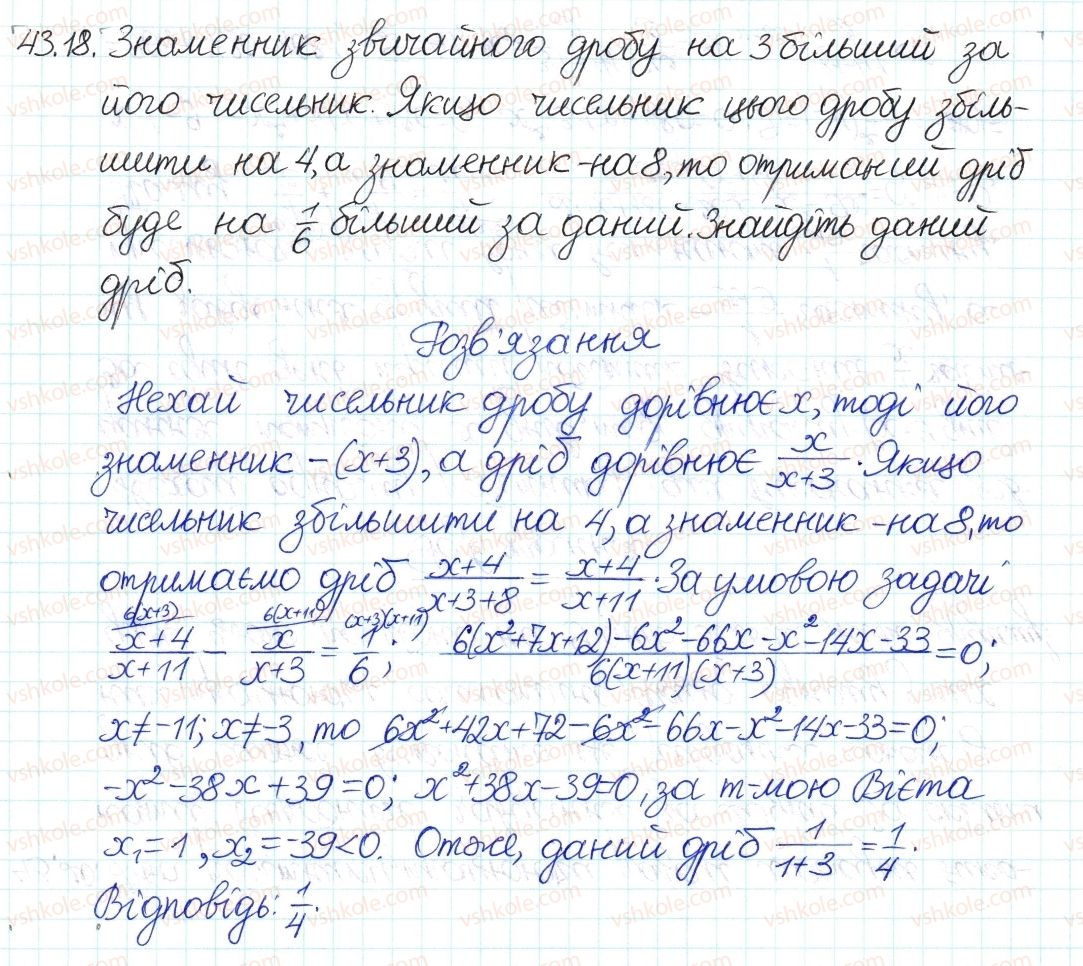 43.18. Знаменник звичайного дробу на 3 більший за
його чисельник. Якщо чисельник цього дробу збіль-
шити на 4, а знаменник - на 8, то отриманий дріб
буде на 1/6 більший за даний. Знайдіть даний
дріб.
Розв'язання
Нехай чисельник дробу дорівнює x, тоді його
знаменник - (x+3), а дріб дорівнює x/(x+3). Якщо
чисельник збільшити на 4, а знаменник - на 8, то
отримаємо дріб (x+4)/(x+3+8) = (x+4)/(x+11). За умовою задачі
6(x+3) 6(x+11) (x+3)(x+11)
(x+4)/(x+11) - x/(x+3) = 1/6; (6(x²+7x+12)-6x²-66x-x²-14x-33)/(6(x+11)(x+3)) = 0;
x≠-11; x≠-3, то 6x²+42x+72-6x²-66x-x²-14x-33=0;
-x²-38x+39=0; x²+38x-39=0, за т-мою Вієта
x₁=1, x₂=-39<0. Отже, даний дріб 1/(1+3) = 1/4.
Відповідь: 1/4.
vshkole.com